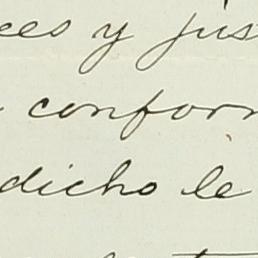 ces y jus
confor
dicho le